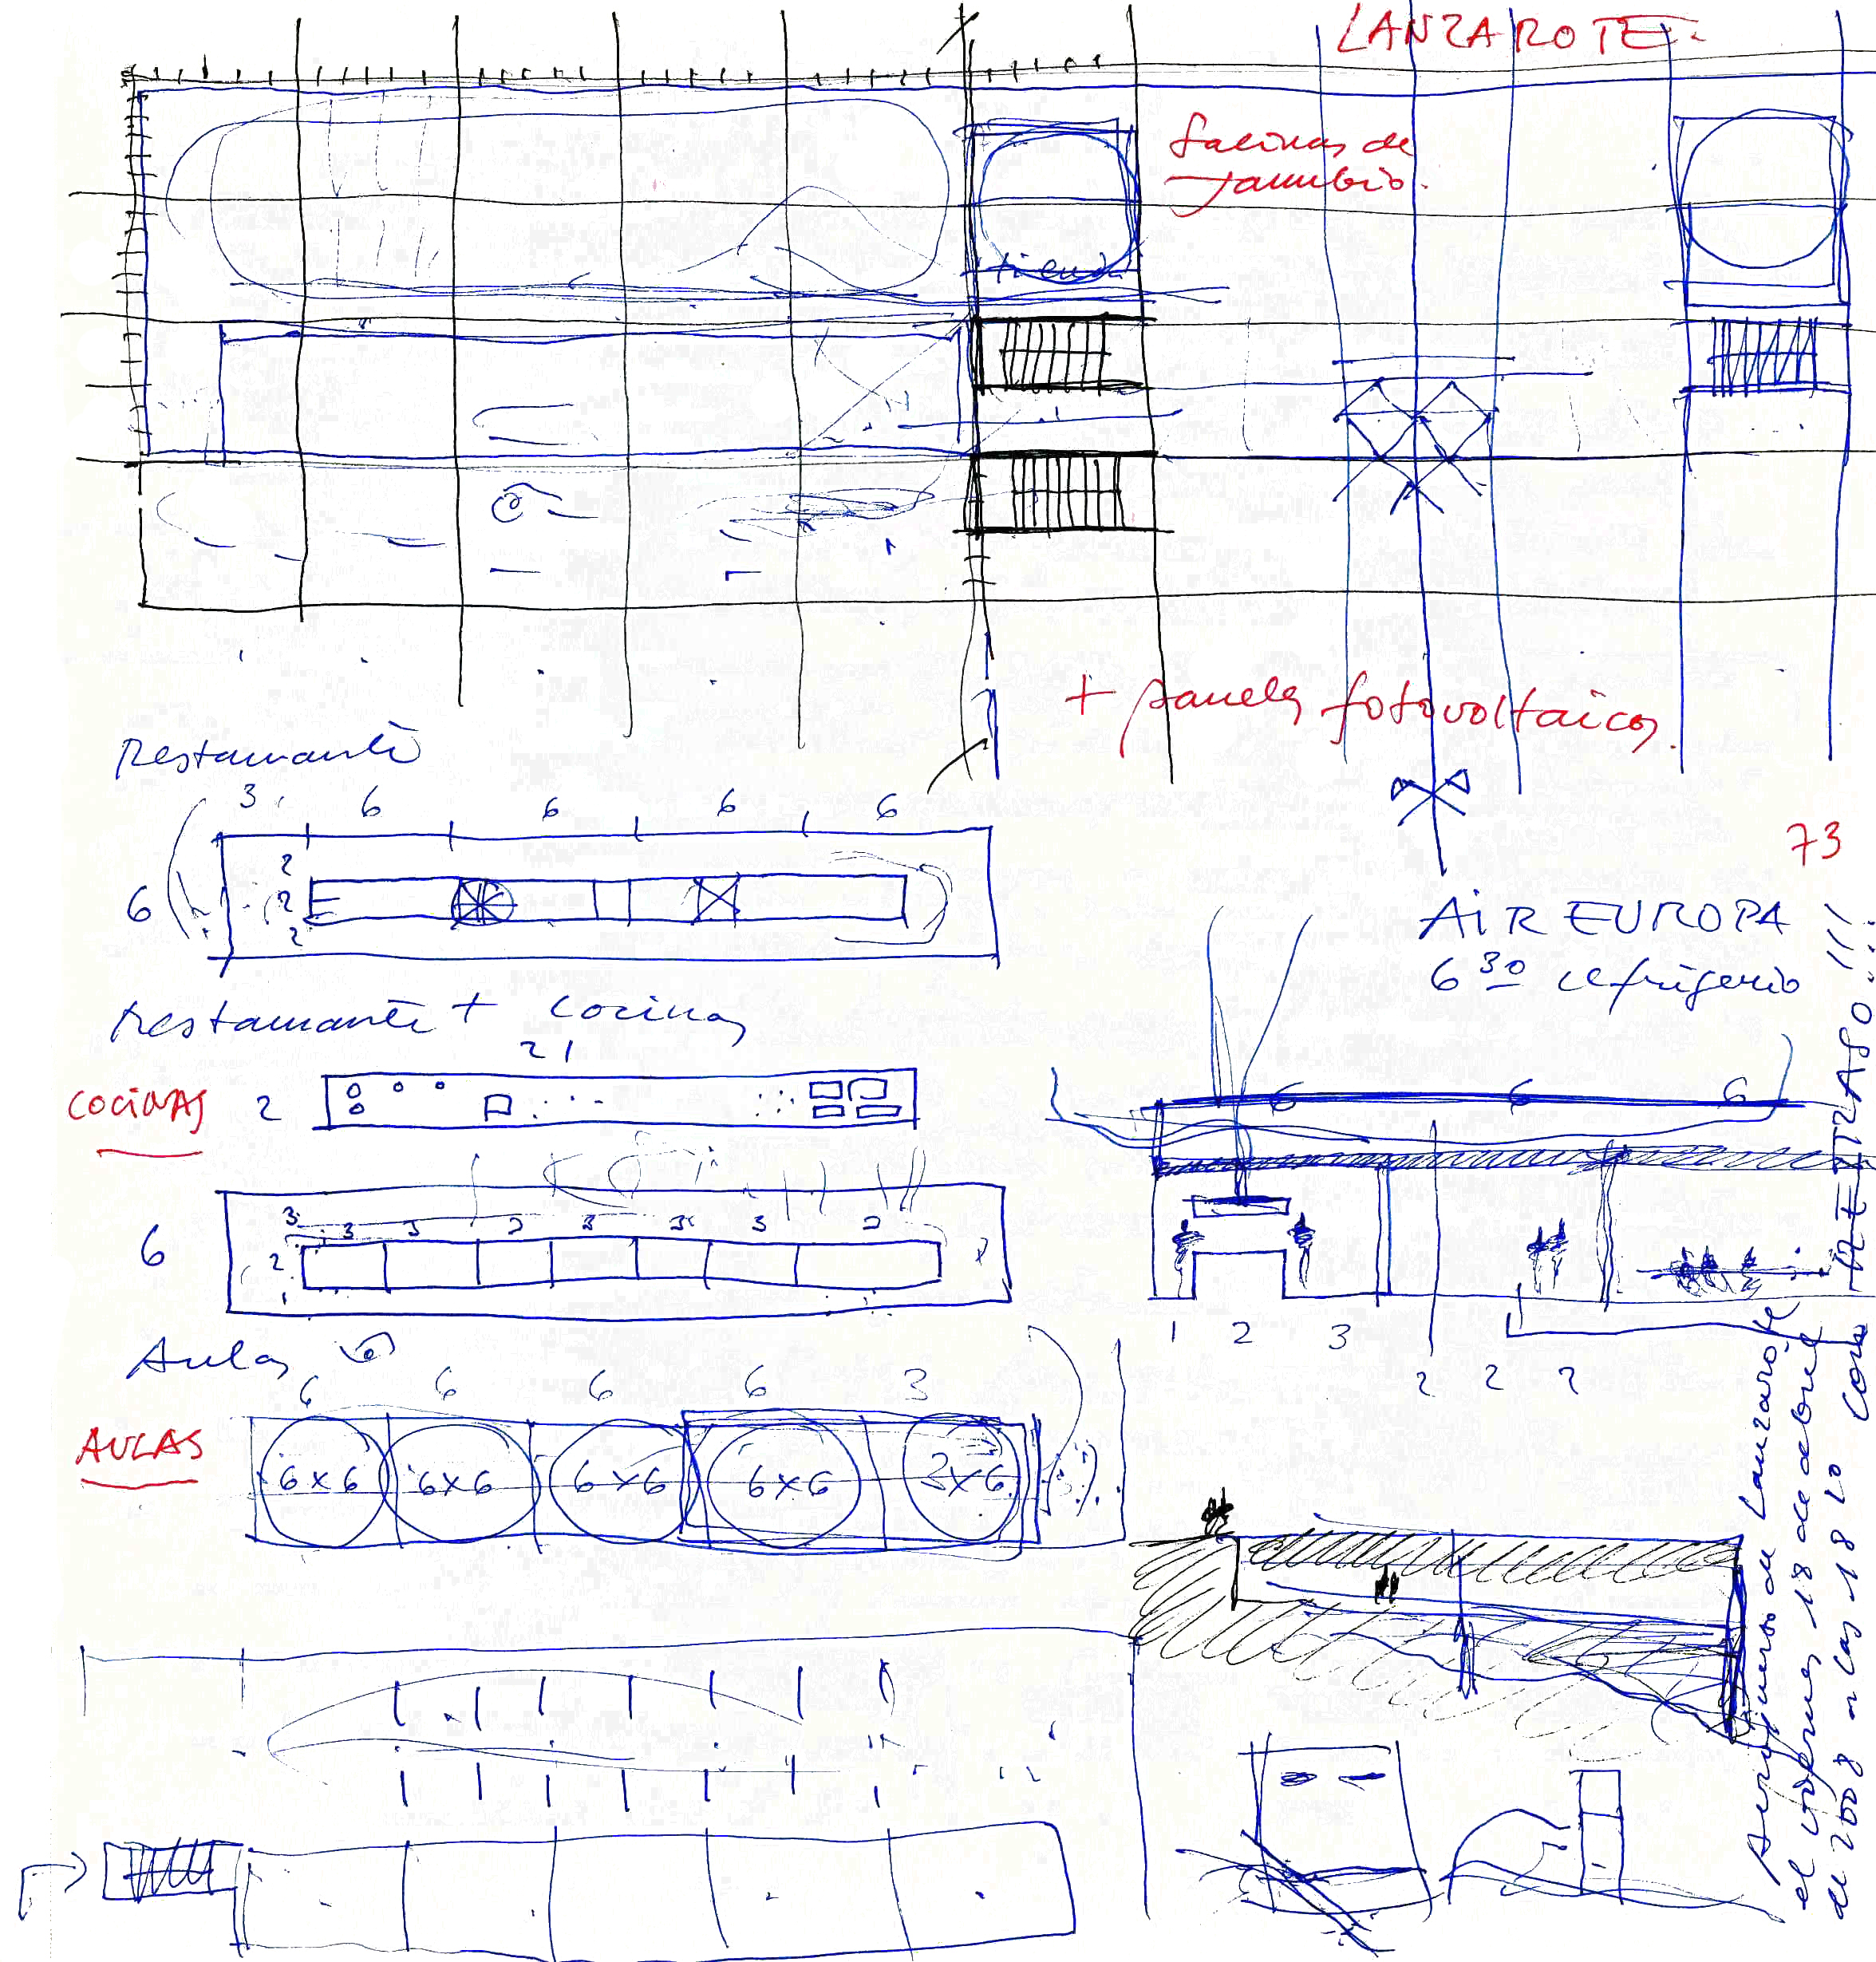 LANZAROTE.
Salinas de
Janubio.
tienda
+ panels fotovoltaicos.
Restaurante
3 6 6 6 6
2
6 2
2
73
AIR EUROPA
6 30 refrigerio
Restaurante + cocinas
21
COCINAS 2
6 6 6
3 3 3 2 3 3 3 2
6 2
1 2 3
2 2 2
Aulas
6 6 6 6 3
AULAS
6x6 6x6 6x6 6x6 3x6
Aeropuerto de Lanzarote
el viernes 18 de abril
de 2008 a las 18 20 con RETRASO!!!